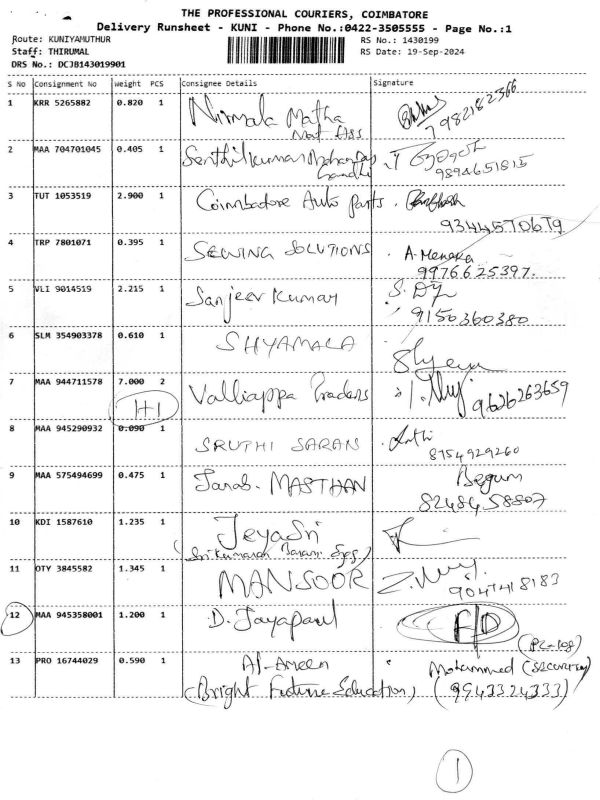 THE PROFESSIONAL COURIERS, COIMBATORE
Delivery Runsheet - KUNI - Phone No.:0422-3505555 - Page No.:1
Route: KUNIYAMUTHUR RS No.: 1430199
Staff: THIRUMAL RS Date: 19-Sep-2024
DRS No.: DCJB143019901
S No Consignment No Weight PCS Consignee Details Signature
1 KRR 5265882 0.820 1 Nirmala Matha 7982182366
2 MAA 704701045 0.405 1 Senthilkumar Mohandas
Gandhi 9894651815
3 TUT 1053519 2.900 1 Coimbatore Auto parts.
9344570679
4 TRP 7801071 0.395 1 SEWING SOLUTIONS A. Menaka
9976625397.
5 VLI 9014519 2.215 1 Sanjeev Kumar
9150360380
6 SLM 354903378 0.610 1 SHYAMALA
7 MAA 944711578 7.000 2 Valliappa Traders 9626263659
1+1
8 MAA 945290932 0.090 1 SRUTHI SARAN
8754929260
9 MAA 575494699 0.475 1 Janab. MASTHAN Begum
8248458807
10 KDI 1587610 1.235 1 JeyaSri
(Srikumaran
11 OTY 3845582 1.345 1 MANSOOR
9047418183
12 MAA 945358001 1.200 1 D. Jayapaul
13 PRO 16744029 0.590 1 Al-Ameen Mohammed (SECURITY)
(Bright Future Education) (9943324333)
1